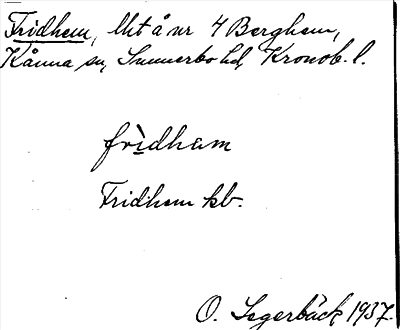 Fridhem, lht å nr 4 Berghem,
Kånna sn, Sunnerbo hd, Kronob. l.
frìdhæm
Fridhem kb.
O. Segerbäck 1937.